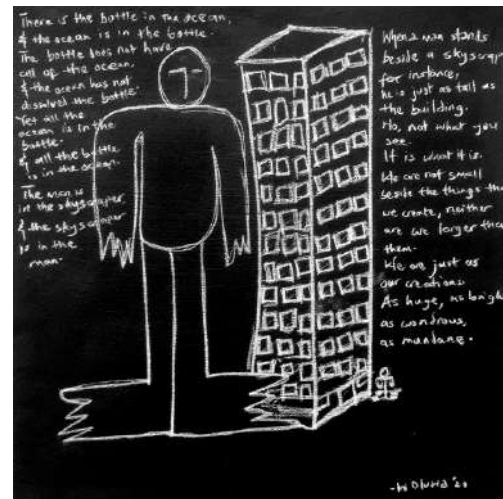 There is the bottle in the ocean,
& the ocean is in the bottle.
The bottle does not have
all of the ocean.
& the ocean has not
dissolved the bottle.
Yet all the
ocean is in the
bottle.
& all the bottle
is in the ocean.
The man is
in the skyscraper
& the skyscraper
is in the
man.
When a man stands
beside a skyscraper
for instance,
he is just as tall as
the building.
No, not what you
see.
It is what it is.
We are not small
beside the things that
we create, neither
are we larger than
them.
We are just as
our creations
As huge, as bright
as wondrous,
as mundane.